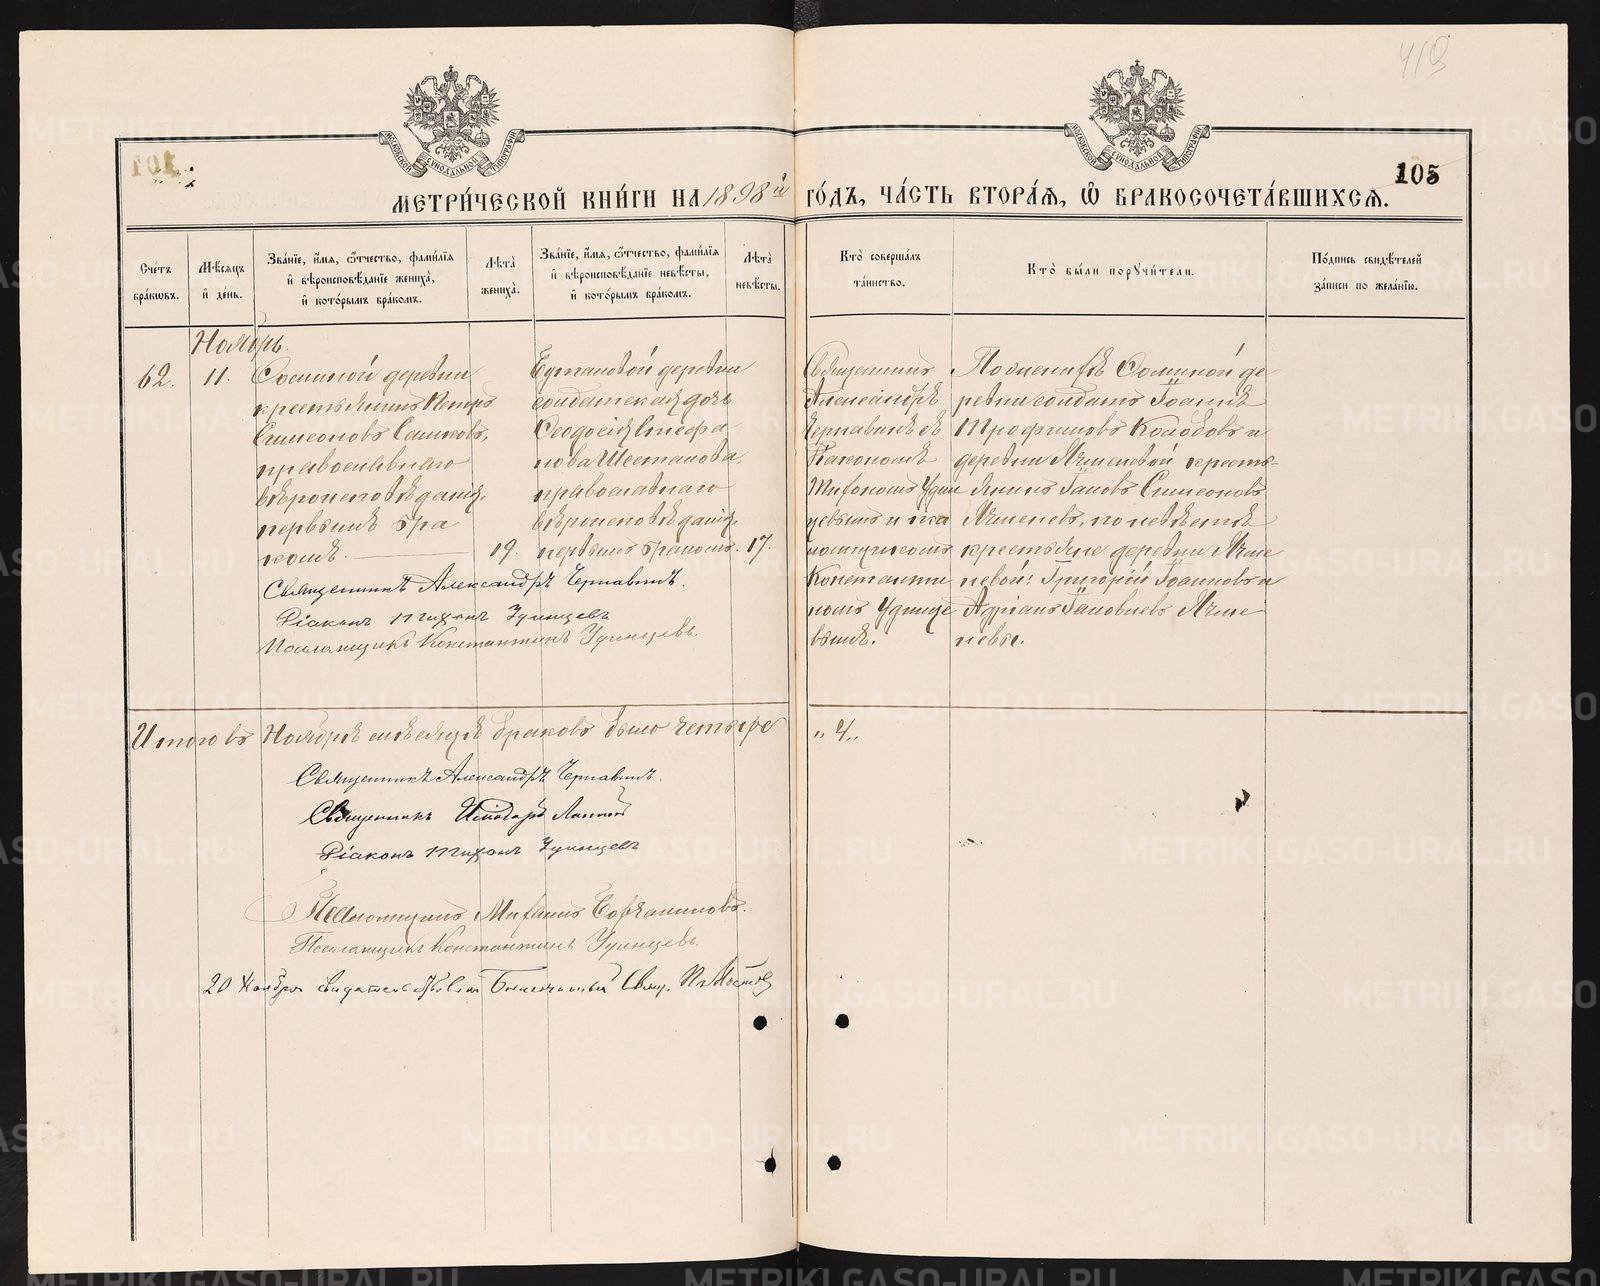 419
105
МЕТРИ́ЧЕСКОЙ КНИ́ГИ НА 1898й ГО́ДЪ, ЧА́СТЬ ВТОРА́Ѧ, Ѽ БРАКОСОЧЕТА́ВШИХСѦ.
Сче́тъ бра́кѡвъ.
Мѣ́сяцъ и҆ де́нь.
Зва́нїе, и҆́мѧ, ѻ҆́тчество, фамѝлїѧ и҆ вѣроисповѣ́данїе жениха̀, и҆ кото́рымъ бра́комъ.
Лѣта̀ жениха̀.
Зва́нїе, и҆́мѧ, ѻ҆́тчество, фамѝлїѧ и҆ вѣроисповѣ́данїе невѣ́сты, и҆ кото́рымъ бра́комъ.
Лѣта̀ невѣ́сты.
Кто̀ соверша́лъ та́инство.
Кто̀ бы́ли порꙋчи́тели.
По́дпись свидѣ́телей за́писи по жела́нїю.
Ноябрь.
62. 11.
Сосниной деревни
крестьянинъ Петръ
Симеоновъ
православнаго
вѣроисповѣданія,
первымъ бра
комъ. 19.
деревни
солдатская дочь
Ѳеодосія Стефа
нова Шестакова,
православнаго
вѣроисповѣданія,
первымъ бракомъ. 17.
Священникъ
Александръ
Чернавинъ съ
Діакономъ
Тихономъ Удин
цевымъ и пса
ломщикомъ
Константи
номъ Удинце
вымъ.
По женихѣ Сосниной де
ревни солдатъ Іоаннъ
Трофимовъ и
деревни Ячменевой кресть-
янинъ Іаковъ Симеоновъ
Ячменевъ, по невѣстѣ
крестьяне деревни Ячме
невой: Григорій Іоанновъ и
Адріанъ Іаковлевъ Ячме
невы.
Священникъ Александръ Чернавинъ.
Діаконъ Тихонъ Удинцевъ
Псаломщикъ Константинъ Удинцевъ.
Итого въ Ноябрѣ мѣсяцѣ браковъ было четыре „4„
Священникъ Александръ Чернавинъ.
Священникъ
Діаконъ Тихонъ Удинцевъ
Псаломщикъ
Псаломщикъ Константинъ Удинцевъ.
20 Ноября свидетельствовалъ Благочинный Свящ.
METRIKI.GASO-URAL.RU